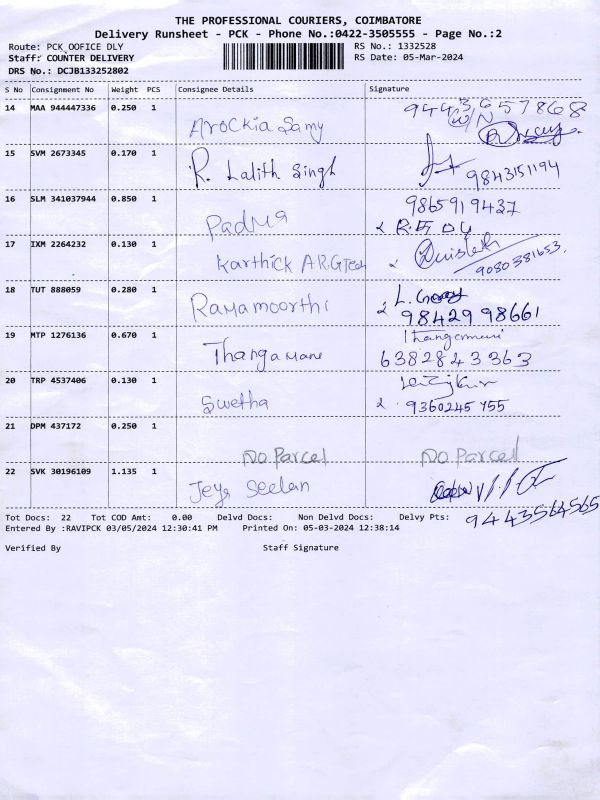 THE PROFESSIONAL COURIERS, COIMBATORE
Delivery Runsheet - PCK - Phone No.:0422-3505555 - Page No.:2
Route: PCK_OOFICE DLY
RS No.: 1332528
Staff: COUNTER DELIVERY
RS Date: 05-Mar-2024
DRS No.: DCJB133252802
S No Consignment No Weight PCS Consignee Details Signature
14 MAA 944447336 0.250 1
Arockia Samy
15 SVM 2673345 0.170 1
R. Lalith Singh
9843151194
16 SLM 341037944 0.850 1
Padma
9865919437
17 IXM 2264232 0.130 1
Karthick A R.G Tech
9080381653
18 TUT 888059 0.280 1
Ramamoorthi
98429 98661
19 MTP 1276136 0.670 1
Thangamani
6382843363
20 TRP 4537406 0.130 1
Swetha
9360245755
21 DPM 437172 0.250 1
No Parcel No Parcel
22 SVK 30196109 1.135 1
Jeya Seelan
9443564565
Tot Docs: 22 Tot COD Amt: 0.00 Delvd Docs: Non Delvd Docs: Delvy Pts:
Entered By :RAVIPCK 03/05/2024 12:30:41 PM Printed On: 05-03-2024 12:38:14
Verified By Staff Signature